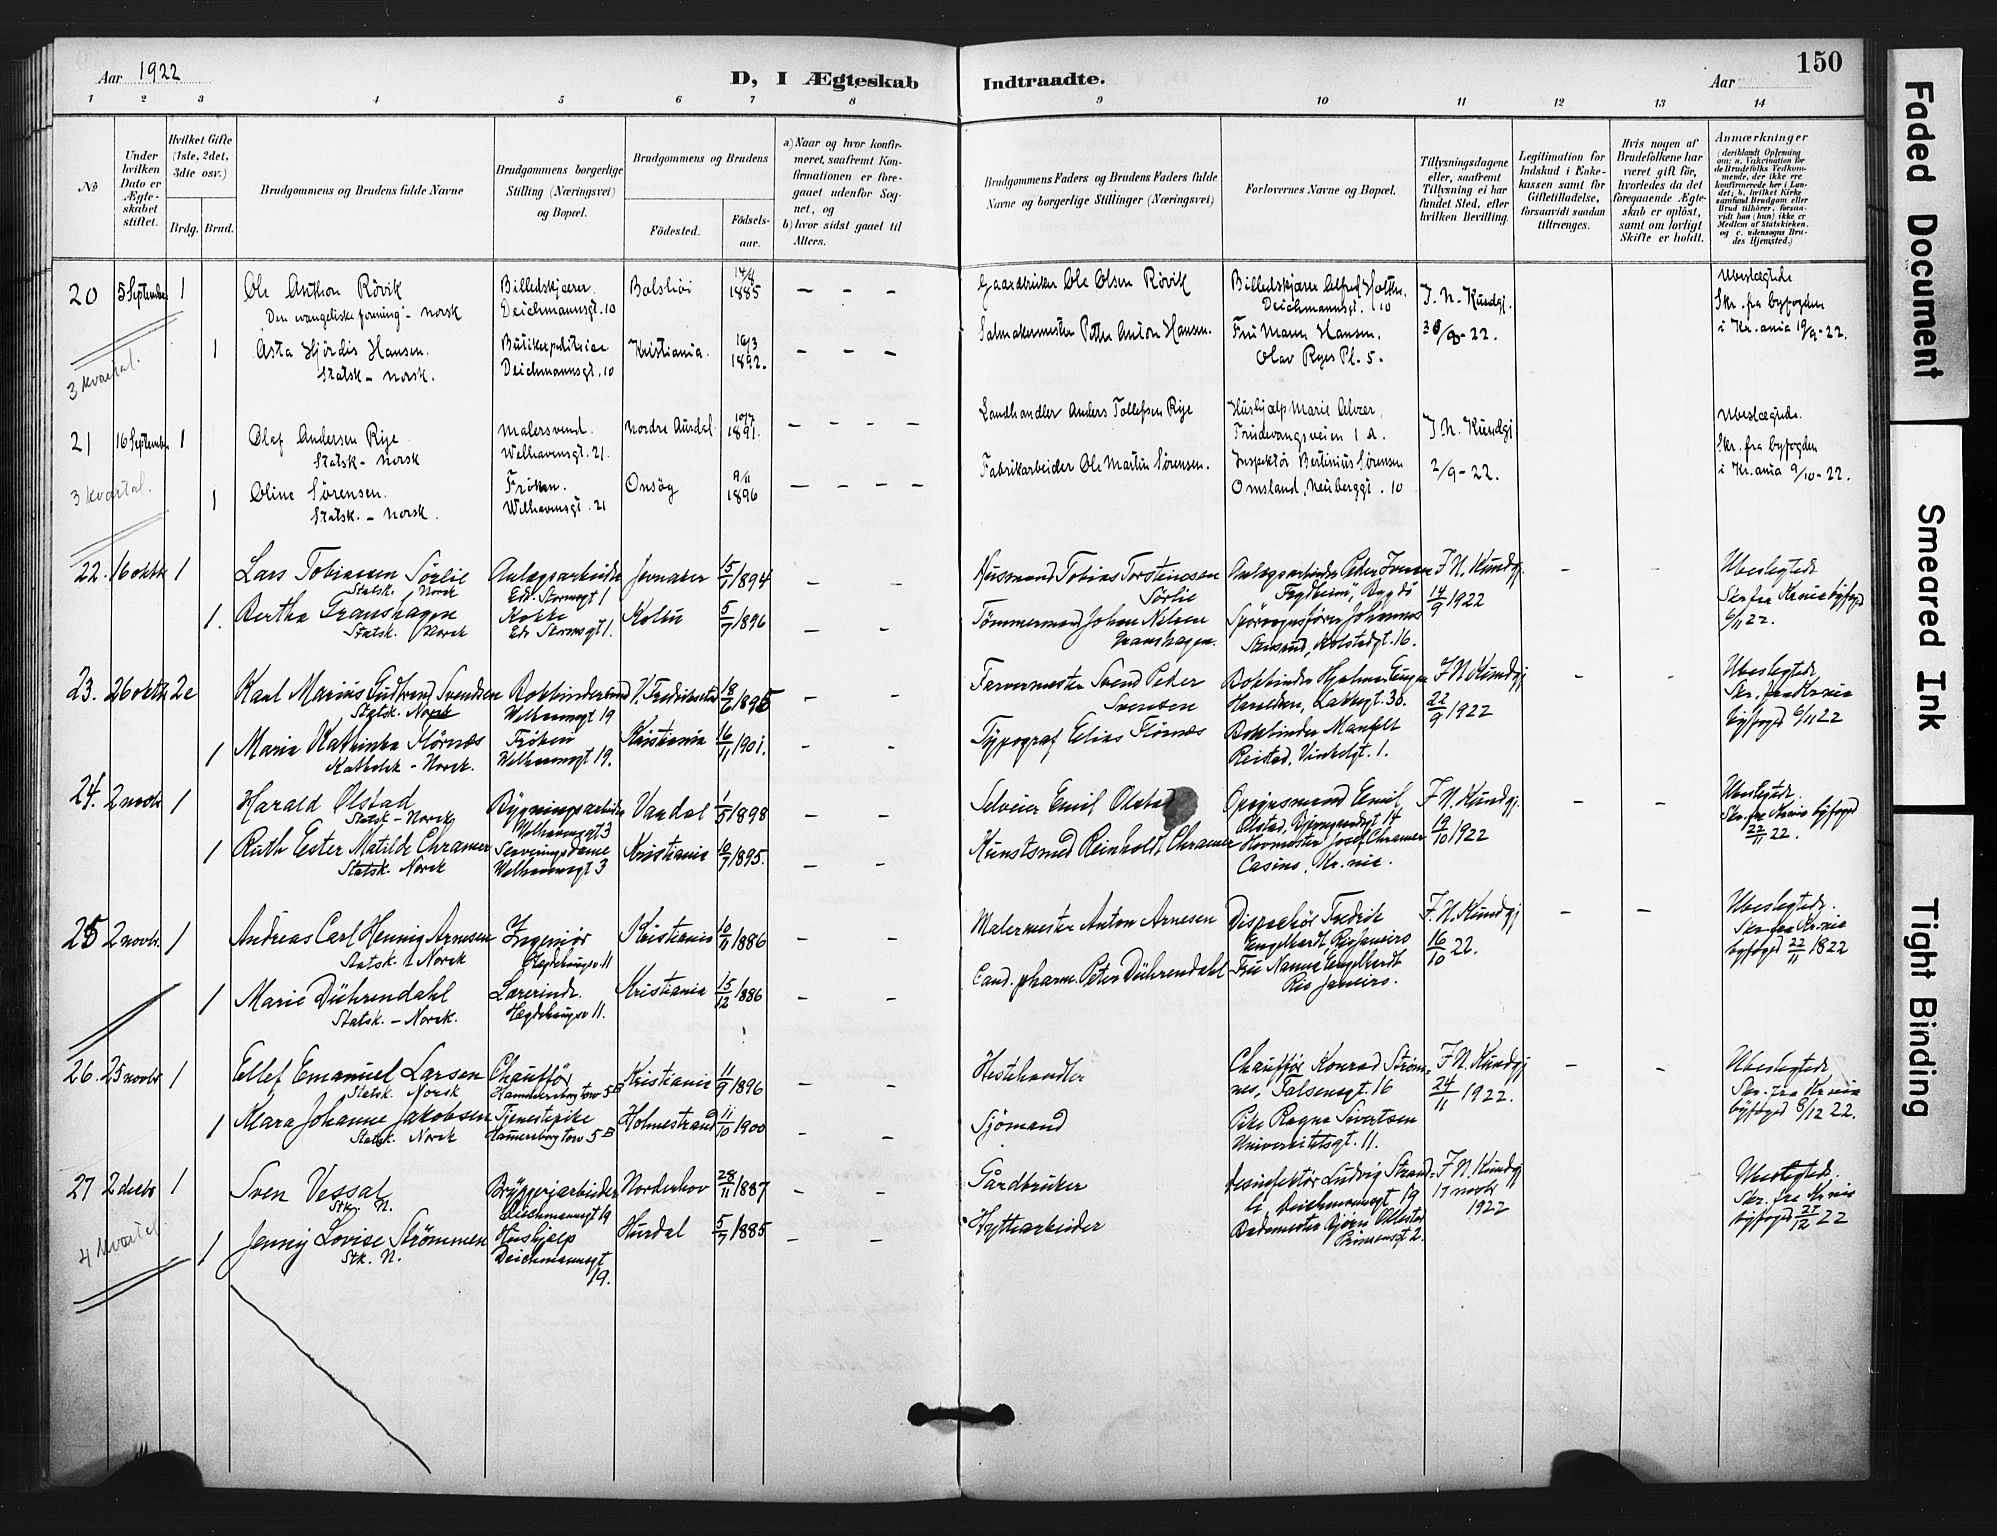 Aar 1922
D, I Ægteskab Indtraadte.
Aar
150
1 2 3 4 5 6 7 8 9 10 11 12 13 14
No
Under hvilken Dato er Ægteskabet stiftet.
Hvilket Gifte (1ste, 2det, 3die osv.)
Brdg. Brud.
Brudgommens og Brudens fulde Navne
Brudgommens borgerlige Stilling (Næringsvei) og Bopæl.
Brudgommens og Brudens
Födested.
Födselsaar.
a) Naar og hvor konfirmeret, saafremt Konfirmationen er foregaaet udenfor Sognet, og
b) hvor sidst gaaet til Alters.
Brudgommens Faders og Brudens Faders fulde Navne og borgerlige Stillinger (Næringsvei)
Forlovernes Navne og Bopæl.
Tillysningsdagene eller, saafremt Tillysning ei har fundet Sted, efter hvilken Bevilling.
Legitimation for Indskud i Enkekassen samt for Giftetilladelse, forsaavidt saadan tiltrænges.
Hvis nogen af Brudefolkene har været gift før, hvorledes da det foregaaende Ægteskab er opløst, samt om lovligt Skifte er holdt.
Anmærkninger
20 5 September 1 Ole Anthon Rövik Billedskjærer. Bolshöi 14/4 1885 – – – Gaardbruker Ole Olsen Rövik Billedskjærer Alfred Holter. F. N. Kundgj. Ubeslægtede
"Den evangeliske forening" - norsk Deichmannsgt. 10 Deichmannsgt. 10 Skr. fra byfogden
1 Asta Hjördis Hansen. Butikexpeditrice Kristiania. 16/3 1892. – – – Salmakermester Petter Anton Hansen. Fru Mann Hansen. 30/8-22. i Kr.ania 19/9-22.
Statsk - norsk. Deichmannsgt. 10 Olav Ryes Pl. 5.
3 kvartal.
21 16 September 1 Olaf Andersen Rye Malersvend. Nordre Aurdal 10/7 1891. – – – – Landhandler Anders Tollefsen Rye Hushjælp Marie Alver, F. N. Kundgj Ubeslægtede.
Statsk - norsk Welhavensgt. 21. Frudevangsveien 1 A. Skr. fra byfogden
1 Oline Sörensen. Fröken. Onsöy 9/11 1896 – – – – Fabrikarbeider Ole Martin Sörensen. Inspektör Bertinius Sörensen 2/9-22. i Kr.ania 9/10-22.
Statsk. - norsk. Welhavensgt. 21 Omsland, Neuberggt. 10
3 kvartal.
22. 16 oktb 1 Lars Tobiassen Sörlie Anlægsarbeider Jevnaker 15/7 1894 – – Husmand Tobias Torstensen Sörlie Anlægsarbeider Peder Iversen F. N. Kundgj. – – Ubeslegtede
Statsk. Norsk Edv. Stormsgt 1 Frydheim, Bygdö 14/9 1922 Skr fra Kr.nia byfoged
1. Bertha Granshagen Kokke Kolbu 5/7 1896 – – Tömmermand Johan Nilsen Granshagen. Sporvognsförer Johannes 6/11 22.
Statsk. Norsk Edv Stormsgt 1. Stensrud, Kolstadgt. 16.
23. 26 oktb 2e Karl Marius Gudtrend Svendsen Bokbindersvend V. Fredrikstad 18/6 1895 – – Farvermester Svend Peder Svensen Bokbinder Hjalmar Eugen F. N Kundgj – – Ubeslegtede
Statsk. Norsk Welhavensgt 19 Haraldsen, Lakkegt. 30. 22/9 1922 Skr. fra Kr.nia
1 Maria Kathinka Störnæs Fröken Kristiania 16/11 1901. – – Typograf Elias Störnæs Bokbinder Manfelt byfoged 6/11 22
Katholsk - Norsk. Welhavensgt 19. Reistad, Vinkelgt. 1.
24. 2 novbr 1 Harald Olstad Bygningsarbeider Vardal 1/5 1898 – – Selveier Emil Olstad Opsynsmand Emil F. N. Kundgj. – – Ubeslegtede.
Statsk - Norsk Welhavensgt 3 Olstad, Bjerregaardsgt 14 19/10 1922 Skr. fra Kr.nia byfoged
1 Ruth Ester Matilde Chramer Serveringsdame Kristiania 10/7 1895. – – Kunstsmed Reinholdt Chramer Hovmester Josef Chramer 22/11 22.
Statsk. Norsk Welhavensgt 3 Casino, Kr.nia.
25 2 novbr. 1 Andreas Carl Hennig Arnesen Ingeniør Kristiania 10/11 1886 – – Malermester Anton Arnesen Dispachör Fredrik F. N. Kundgj – – Ubeslegtede.
Statsk. Norsk Hegdehaugsv. 11 Engelhardt, Rio Janeiro 16/10 22. Skr fra Kr.nia
1 Marie Dührendahl Lærerinde. Kristiania 15/12 1886 – – Cand. pharm. Peter Dührendahl Fru Nanna Engelhardt byfoged 22/11 1822
Statsk. - Norsk. Hegdehaugsv 11. Rio Janeiro.
26. 25 novbr 1 Ellef Emanuel Larsen Chauffför Kristiania 11/9 1896 – – Hestehandler Chauffför Konrad Strömnes, F. N. Kundgj – – Ubeslegtede
Statsk. Norsk Hammersborg torv 5B Falsensgt. 16 24/11 1922. Skr. fra Kr.nia
1 Klara Johanne Jakobsen Tjenestepike Holmestrand 11/10 1900 – – Sjömand Pike Ragna Sivertsen byfoged 8/12 22.
Statsk. Norsk Hammersborg torv 5B Universitetsgt. 11.
27 2 decbr 1 Sven Vessal Bryggeriarbeider Norderhov 28/11 1887 – – Gårdbruker Desinfektör Ludvig Strand- F. N. Kundgj Ubeslegtede.
Stk. N. Deichmannsgt 19 Deichmannsgt 19 17 novbr 1922 Skr. fra Kr.nia
1 Jenny Lovise Strömmen Hushjelp Hurdal 5/7 1885 – – Hyttearbeider Bademester Björn byfoged 27/12 22
Stk. N. Deichmannsgt 19. Prinsensgt 2.
4 kvartal
Faded Document
Smeared Ink
Tight Binding